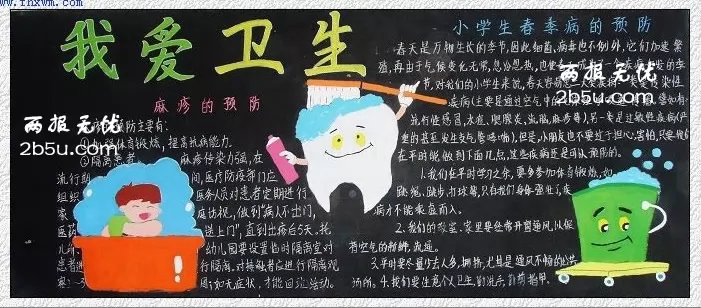 www.fhxwm.com
我爱卫生
小学生春季病的预防
麻疹的预防
两报无忧
2b5u.com
两报无忧
2b5u.com
春天是万物生长的季节,因此细菌,病毒也不例外,它们加速繁
殖,再由于气候变化无常,忽冷忽热,也使
节,对我们的小学生来说,春天容易
疾病(主要是通过空气中的
流行性感冒,水痘,腮腺炎,流脑,麻疹等),另一类是过敏性疾病(严
重的甚至发生支气管哮喘),但是,小朋友也不要过于担心,害怕,只要我们
在平时能做到下面几点,这些疾病还是可以预防的。
1.我们在平时学习之余,要多参加体育锻炼,如,
跑跑,跳步,打球等,只有我们身体强壮了,疾
病才不能乘虚而入。
2.我们的教室,家里要经常开窗通风,以保
有空气的新鲜,流通。
3.平时要尽量少去人多,拥挤,尤其是通风不畅的公共
场所。4.我们要注意个人卫生,勤洗手,勤剪指甲。
预防主要有:
体育锻炼,提高抗病能力。
②隔离患者 麻疹传染力强,在
流行期 间,医疗防疫部门应
组织 医务人员对患者定期进行
家 庭访视,做到“病人不出门,
医药 送上门”,直到出疹后5天,托
儿所 幼儿园要设置临时隔离室对
患者进 行隔离,对接触者应进行隔离观
察 周;如无症状,才能回班活动。